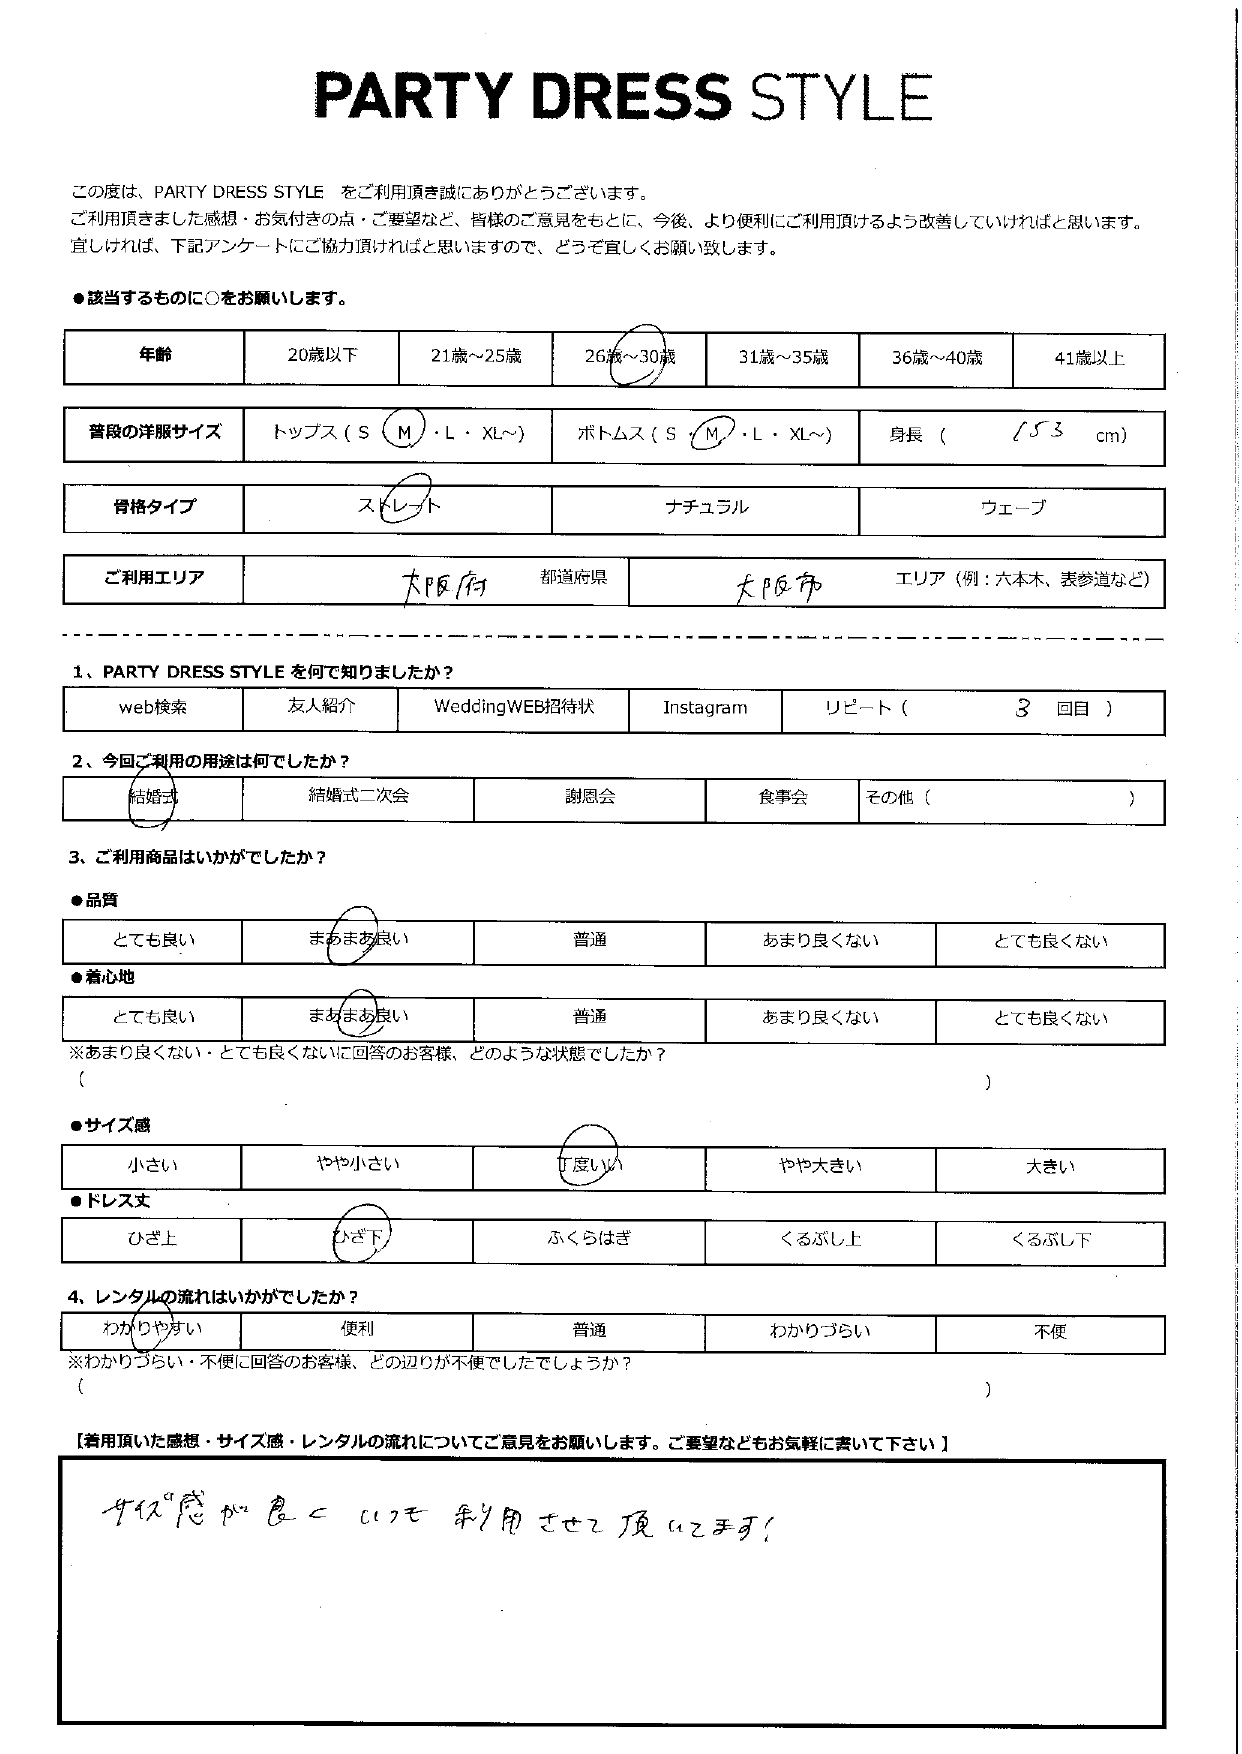 PARTY DRESS STYLE
この度は、PARTY DRESS STYLE をご利用頂き誠にありがとうございます。
ご利用頂きました感想・お気付きの点・ご要望など、皆様のご意見をもとに、今後、より便利にご利用頂けるよう改善していければと思います。
宜しければ、下記アンケートにご協力頂ければと思いますので、どうぞ宜しくお願い致します。
●該当するものに○をお願いします。
年齢 20歳以下 21歳～25歳 26歳～30歳 31歳～35歳 36歳～40歳 41歳以上
普段の洋服サイズ トップス ( S ・ M ・ L ・ XL～) ボトムス ( S ・ M ・ L ・ XL～) 身長 ( 153 cm)
骨格タイプ ストレート ナチュラル ウェーブ
ご利用エリア 大阪府 都道府県 大阪市 エリア（例：六本木、表参道など）
1、PARTY DRESS STYLE を何で知りましたか？
web検索 友人紹介 WeddingWEB招待状 Instagram リピート ( 3 回目 )
2、今回ご利用の用途は何でしたか？
結婚式 結婚式二次会 謝恩会 食事会 その他 ( )
3、ご利用商品はいかがでしたか？
●品質
とても良い まあまあ良い 普通 あまり良くない とても良くない
●着心地
とても良い まあまあ良い 普通 あまり良くない とても良くない
※あまり良くない・とても良くないに回答のお客様、どのような状態でしたか？
( )
●サイズ感
小さい やや小さい 丁度いい やや大きい 大きい
●ドレス丈
ひざ上 ひざ下 ふくらはぎ くるぶし上 くるぶし下
4、レンタルの流れはいかがでしたか？
わかりやすい 便利 普通 わかりづらい 不便
※わかりづらい・不便に回答のお客様、どの辺りが不便でしたでしょうか？
( )
【着用頂いた感想・サイズ感・レンタルの流れについてご意見をお願いします。ご要望などもお気軽に書いて下さい】
サイズ感が良くいつも利用させて頂いてます!